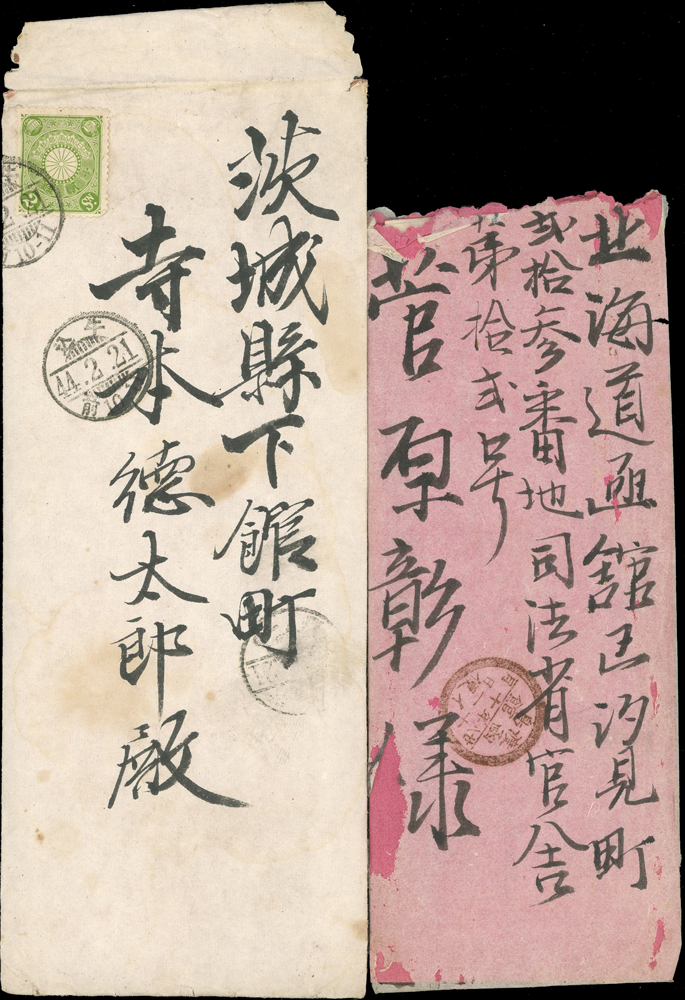 茨城縣下館町
寺本德太郎殿
44.2.21
前10
10-11
北海道函舘区汐見町
弐拾参番地司法省官舎
第拾弐号
菅原彰様